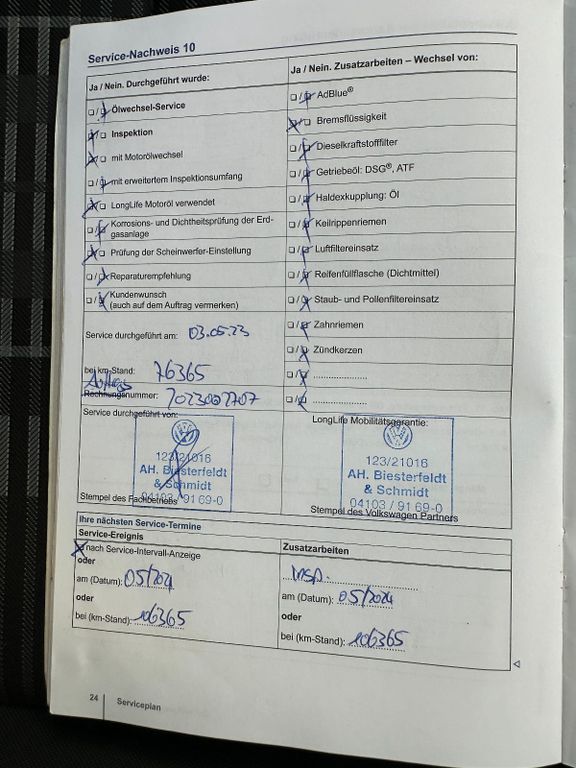 Service-Nachweis 10
Ja / Nein. Durchgeführt wurde:
Ölwechsel-Service
Inspektion
mit Motorölwechsel
mit erweitertem Inspektionsumfang
LongLife Motoröl verwendet
Korrosions- und Dichtheitsprüfung der Erd-
gasanlage
Prüfung der Scheinwerfer-Einstellung
Reparaturempfehlung
Kundenwunsch
(auch auf dem Auftrag vermerken)
Service durchgeführt am: 03.05.23
bei km-Stand: 76365
Auftrags
Rechnungsnummer: 2023002707
Service durchgeführt von:
123/21016
AH. Biesterfeldt
& Schmidt
04103 / 91 69-0
Stempel des Fachbetriebs
Ja / Nein. Zusatzarbeiten – Wechsel von:
AdBlue®
Bremsflüssigkeit
Dieselkraftstofffilter
Getriebeöl: DSG®, ATF
Haldexkupplung: Öl
Keilrippenriemen
Luftfiltereinsatz
Reifenfüllflasche (Dichtmittel)
Staub- und Pollenfiltereinsatz
Zahnriemen
Zündkerzen
LongLife Mobilitätsgarantie:
123/21016
AH. Biesterfeldt
& Schmidt
04103 / 91 69-0
Stempel des Volkswagen Partners
Ihre nächsten Service-Termine
Service-Ereignis
nach Service-Intervall-Anzeige
oder
am (Datum): 05/2024
oder
bei (km-Stand): 106365
Zusatzarbeiten
Insp.
am (Datum): 05/2024
oder
bei (km-Stand): 106365
24 Serviceplan